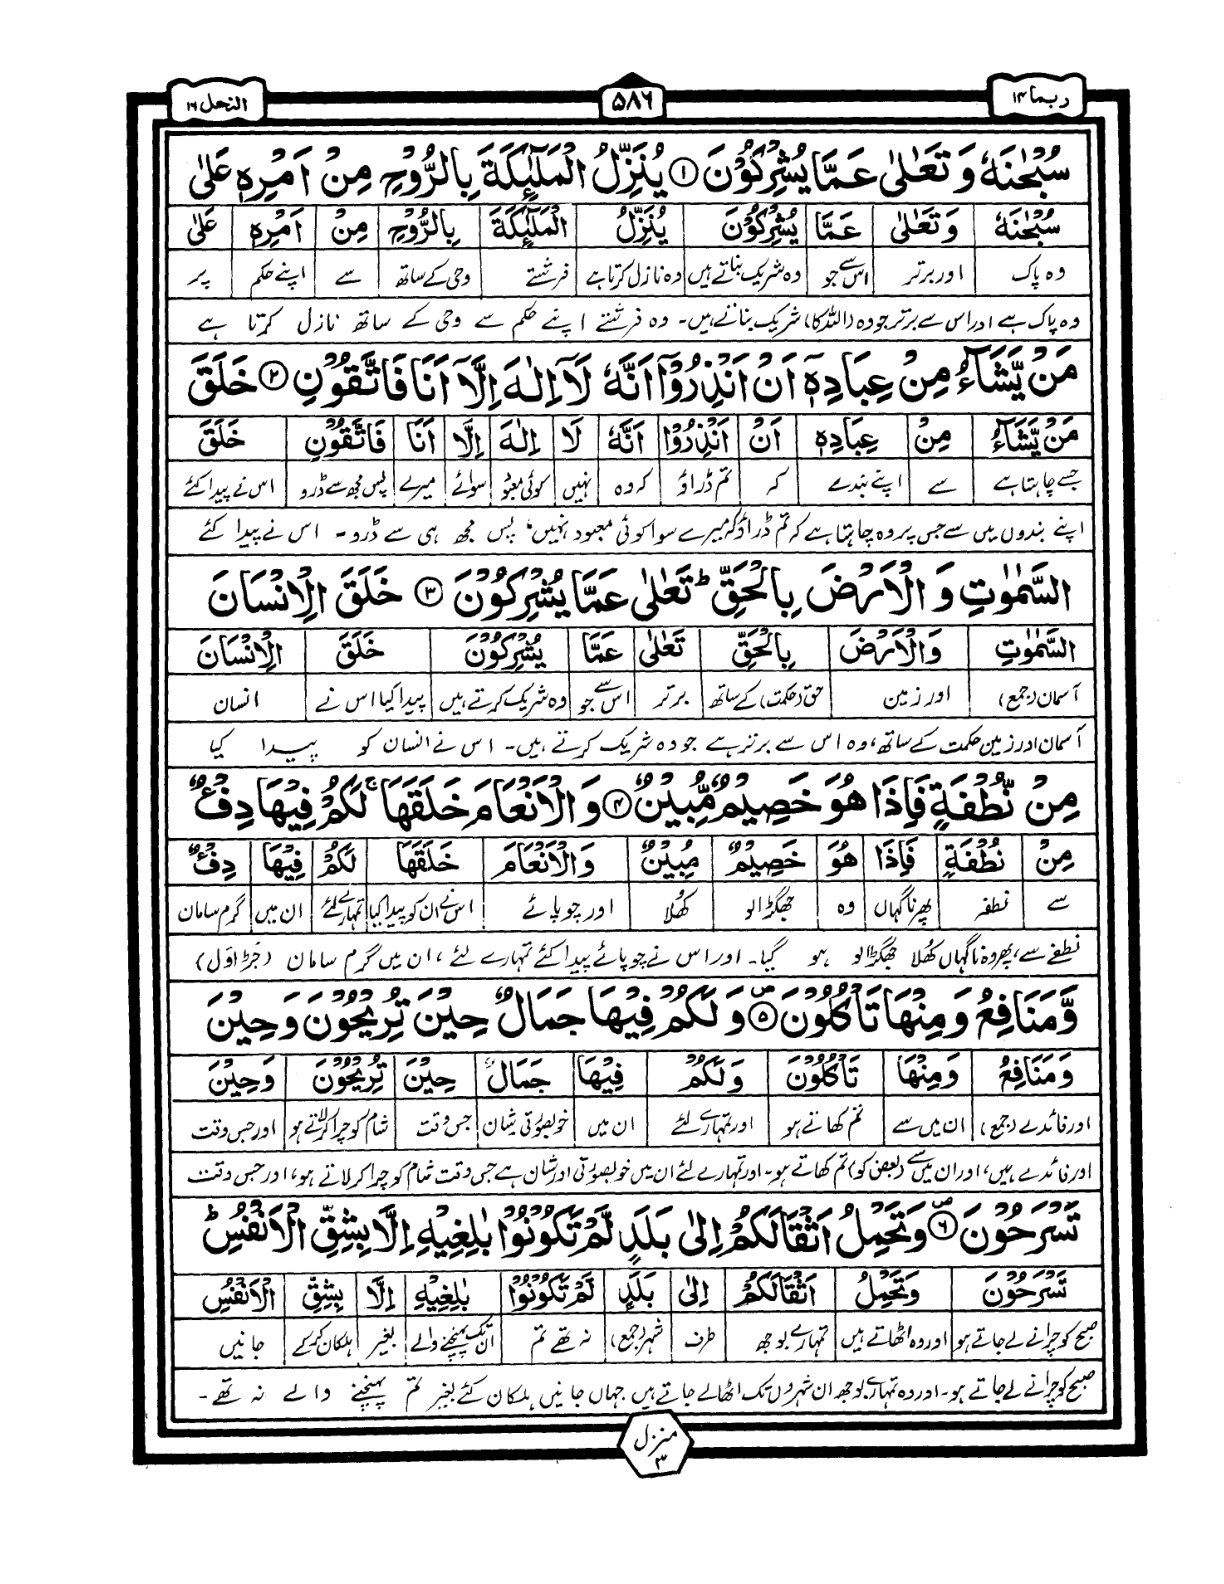 ربما ۱۴
۵۸۶
النحل ۱۶
سُبْحٰنَهٗ وَ تَعٰلٰى عَمَّا يُشْرِكُوْنَ ۱ يُنَزِّلُ الْمَلٰٓئِكَةَ بِالرُّوْحِ مِنْ اَمْرِهٖ عَلٰى
سُبْحٰنَهٗ وَتَعٰلٰى عَمَّا يُشْرِكُوْنَ يُنَزِّلُ الْمَلٰٓئِكَةَ بِالرُّوْحِ مِنْ اَمْرِهٖ عَلٰى
وہ پاک اور برتر اس سے جو وہ شریک بناتے ہیں وہ نازل کرتا ہے فرشتے وحی کے ساتھ سے اپنے حکم پر
وہ پاک ہے اور اس سے برتر جو وہ (اللہ کا) شریک بناتے ہیں۔ وہ فرشتے اپنے حکم سے وحی کے ساتھ نازل کرتا ہے
مَنْ يَّشَآءُ مِنْ عِبَادِهٖٓ اَنْ اَنْذِرُوْٓا اَنَّهٗ لَآ اِلٰهَ اِلَّآ اَنَا فَاتَّقُوْنِ ۲ خَلَقَ
مَنْ يَّشَآءُ مِنْ عِبَادِهٖ اَنْ اَنْذِرُوْٓا اَنَّهٗ لَا اِلٰهَ اِلَّا اَنَا فَاتَّقُوْنِ خَلَقَ
جسے چاہتا ہے سے اپنے بندے کہ تم ڈراؤ کہ وہ نہیں کوئی معبود سوائے میرے پس مجھ سے ڈرو اس نے پیدا کئے
اپنے بندوں میں سے جس پر وہ چاہتا ہے کہ تم ڈراؤ کہ میرے سوا کوئی معبود نہیں، پس مجھ ہی سے ڈرو۔ اس نے پیدا کئے
السَّمٰوٰتِ وَ الْاَرْضَ بِالْحَقِّ ؕ تَعٰلٰى عَمَّا يُشْرِكُوْنَ ۳ خَلَقَ الْاِنْسَانَ
السَّمٰوٰتِ وَالْاَرْضَ بِالْحَقِّ تَعٰلٰى عَمَّا يُشْرِكُوْنَ خَلَقَ الْاِنْسَانَ
آسمان (جمع) اور زمین حق (حکمت) کے ساتھ برتر اس سے جو وہ شریک کرتے ہیں پیدا کیا اس نے انسان
آسمان اور زمین حکمت کے ساتھ، وہ اس سے برتر ہے جو وہ شریک کرتے ہیں۔ اس نے انسان کو پیدا کیا
مِنْ نُّطْفَةٍ فَاِذَا هُوَ خَصِيْمٌ مُّبِيْنٌ ۴ وَ الْاَنْعَامَ خَلَقَهَا ۚ لَكُمْ فِيْهَا دِفْءٌ
مِنْ نُطْفَةٍ فَاِذَا هُوَ خَصِيْمٌ مُبِيْنٌ وَالْاَنْعَامَ خَلَقَهَا لَكُمْ فِيْهَا دِفْءٌ
سے نطفہ پھر ناگہاں وہ جھگڑالو کھُلا اور چوپائے اس نے ان کو پیدا کیا تمہارے لئے ان میں گرم سامان
نطفے سے، پھر وہ ناگہاں کھُلا جھگڑالو ہو گیا۔ اور اس نے چوپائے پیدا کئے تمہارے لئے، ان میں گرم سامان (جڑاوَل)
وَّمَنَافِعُ وَ مِنْهَا تَاْكُلُوْنَ ۵ وَ لَكُمْ فِيْهَا جَمَالٌ حِيْنَ تُرِيْحُوْنَ وَ حِيْنَ
وَمَنَافِعُ وَمِنْهَا تَاْكُلُوْنَ وَلَكُمْ فِيْهَا جَمَالٌ حِيْنَ تُرِيْحُوْنَ وَحِيْنَ
اور فائدے (جمع) ان میں سے تم کھاتے ہو اور تمہارے لئے ان میں خوبصورتی شان جس وقت شام کو چرا کر لاتے ہو اور جس وقت
اور فائدے ہیں، اور ان میں سے (بعض کو) تم کھاتے ہو۔ اور تمہارے لئے ان میں خوبصورتی اور شان ہے جس وقت شام کو چرا کر لاتے ہو، اور جس وقت
تَسْرَحُوْنَ ۶ وَ تَحْمِلُ اَثْقَالَكُمْ اِلٰى بَلَدٍ لَّمْ تَكُوْنُوْا بٰلِغِيْهِ اِلَّا بِشِقِّ الْاَنْفُسِ ؕ
تَسْرَحُوْنَ وَتَحْمِلُ اَثْقَالَكُمْ اِلٰى بَلَدٍ لَمْ تَكُوْنُوْا بٰلِغِيْهِ اِلَّا بِشِقِّ الْاَنْفُسِ
صبح کو چرانے لے جاتے ہو اور وہ اٹھاتے ہیں تمہارے بوجھ طرف شہر (جمع) نہ تھے تم ان تک پہنچنے والے بغیر ہلکان کر کے جانیں
صبح کو چرانے لے جاتے ہو۔ اور وہ تمہارے بوجھ ان شہروں تک اٹھا لے جاتے ہیں جہاں جانیں ہلکان کئے بغیر تم پہنچنے والے نہ تھے۔
منزل ۳